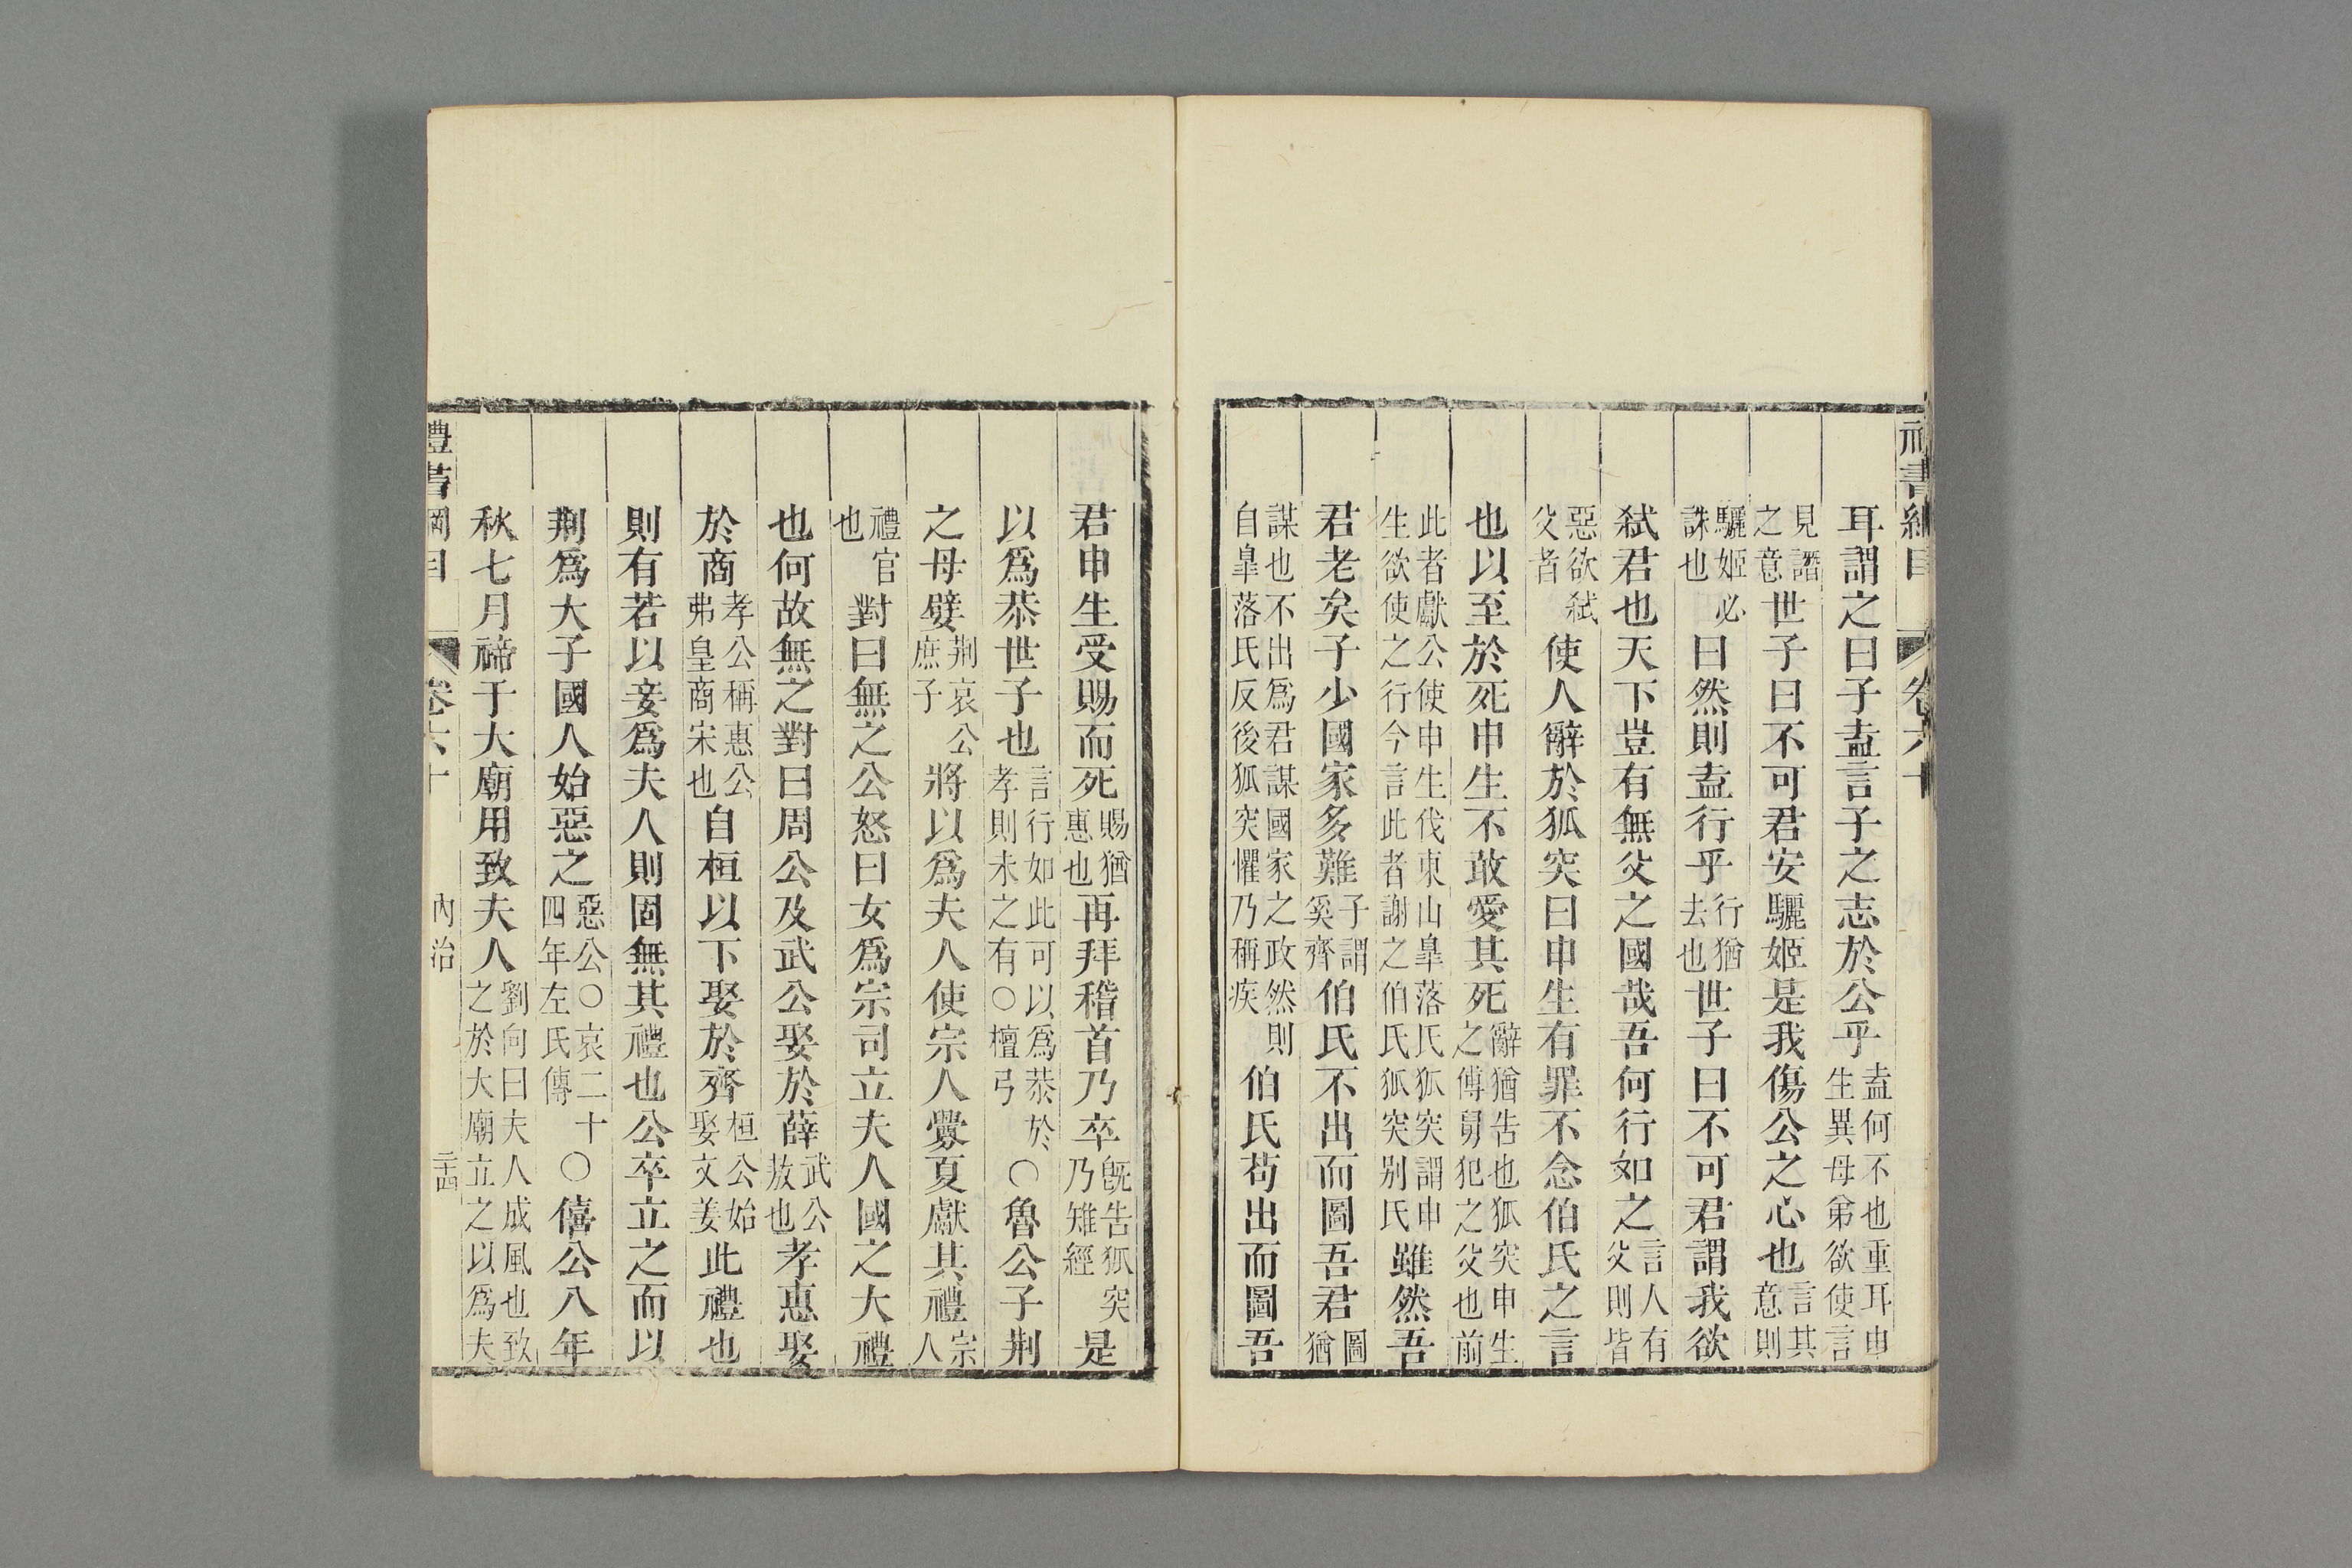 書綱目　卷六十
耳謂之曰子盍言子之志於公乎盍何不也重耳申生異母弟欲使言
見譖之意世子曰不可君安驪姬是我傷公之心也言其意則
驪姬必誅也曰然則盍行乎行猶去也世子曰不可君謂我欲
弑君也天下豈有無父之國哉吾何行如之言人有父則皆
惡欲弑父者使人辭於狐突曰申生有罪不念伯氏之言
也以至於死申生不敢愛其死辭猶告也狐突申生之傅舅犯之父也前
此者獻公使申生伐東山臯落氏狐突謂申生欲使之行今言此者謝之伯氏狐突别氏雖然吾
君老矣子少國家多難子謂奚齊伯氏不出而圖吾君圖猶
謀也不出爲君謀國家之政然則自臯落氏反後狐突懼乃稱疾伯氏苟出而圖吾
君申生受賜而死賜猶惠也再拜稽首乃卒旣告狐突乃雉經是
以爲恭世子也言行如此可以爲恭於孝則未之有○檀弓○魯公子荆
之母嬖荆哀公庶子將以爲夫人使宗人釁夏獻其禮宗人
禮官也對曰無之公怒曰女爲宗司立夫人國之大禮
也何故無之對曰周公及武公娶於薛武公敖也孝惠娶
於商孝公稱惠公弗皇商宋也自桓以下娶於齊桓公始娶文姜此禮也
則有若以妾爲夫人則固無其禮也公卒立之而以
荆爲大子國人始惡之惡公○哀二十四年左氏傳○僖公八年
秋七月禘于大廟用致夫人劉向曰夫人成風也致之於大廟立之以爲夫
禮書綱目　卷六十　內治　二十四